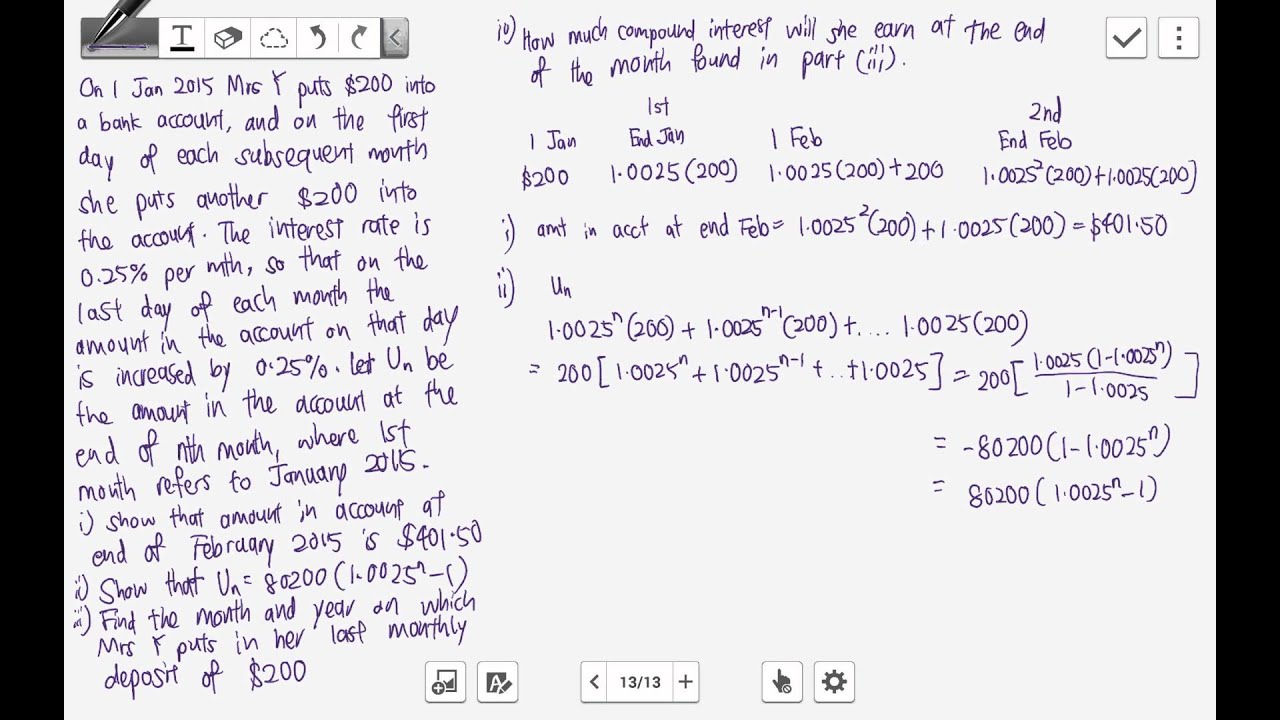 T
On 1 Jan 2015 Mrs Y puts $200 into
a bank account, and on the first
day of each subsequent month
she puts another $200 into
the account. The interest rate is
0.25% per mth, so that on the
last day of each month the
amount in the account on that day
is increased by 0.25%. let Un be
the amount in the account at the
end of nth month, where 1st
month refers to January 2015.
i) show that amount in account at
end of February 2015 is $401.50
ii) Show that Un = 80200(1.0025ⁿ-1)
iii) Find the month and year on which
Mrs Y puts in her last monthly
deposit of $200
iv) How much compound interest will she earn at the end
of the month found in part (iii).
1st 2nd
1 Jan End Jan 1 Feb End Feb
$200 1.0025(200) 1.0025(200)+200 1.0025²(200)+1.0025(200)
i) amt in acct at end Feb = 1.0025²(200)+1.0025(200) = $401.50
ii) Un
1.0025ⁿ(200) + 1.0025ⁿ⁻¹(200) +.... 1.0025(200)
= 200[1.0025ⁿ + 1.0025ⁿ⁻¹ + .. +1.0025] = 200[1.0025(1-1.0025ⁿ)/1-1.0025]
= -80200(1-1.0025ⁿ)
= 80200(1.0025ⁿ-1)
13/13